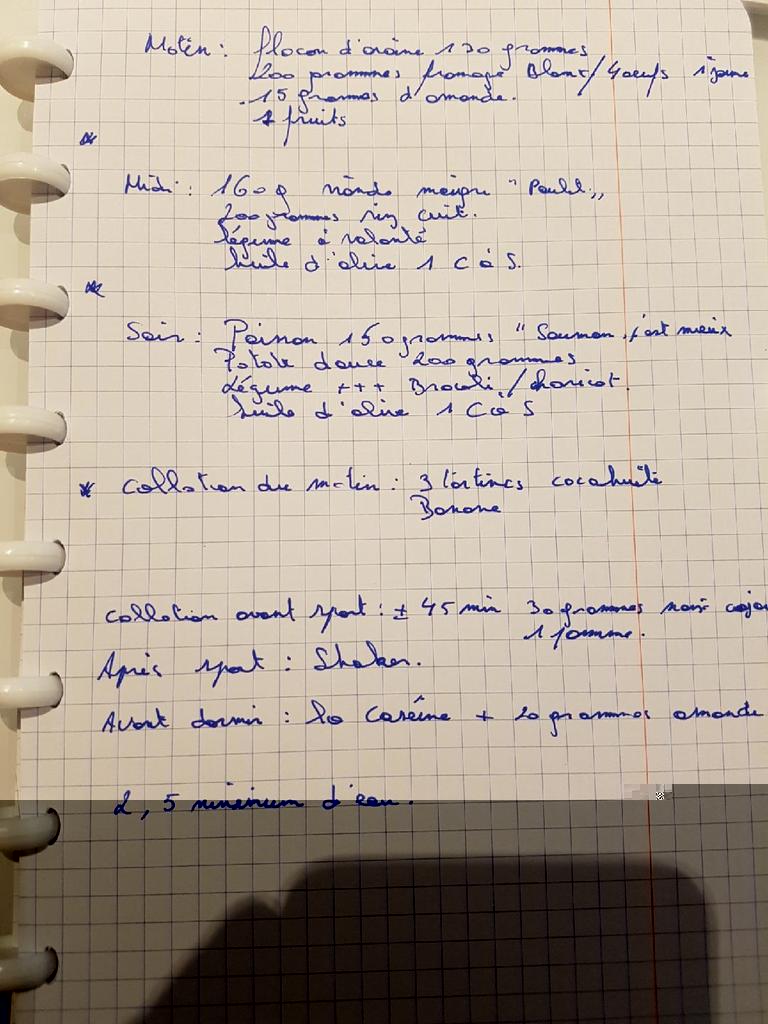 Matin : flocon d'avoine 130 grammes
200 grammes fromage Blanc/4 oeufs 1 jaune
. 15 grammes d'amande.
1 fruits
Midi : 160 g viande maigre "Poulet,,
200 grammes riz cuit.
légume à volonté
huile d'olive 1 C à S.
Soir : Poisson 150 grammes "Saumon, c'est mieux
Patate douce 200 grammes
Légume +++ Brocoli / haricot.
huile d'olive 1 C à S
* Collation du matin : 3 tartines cacahuète
Banane
Collation avant sport : ± 45 min 30 grammes noix cajou
1 pomme.
Après sport : Shaker.
Avant dormir : la Caséine + 20 grammes amande
2,5 minimum d'eau.